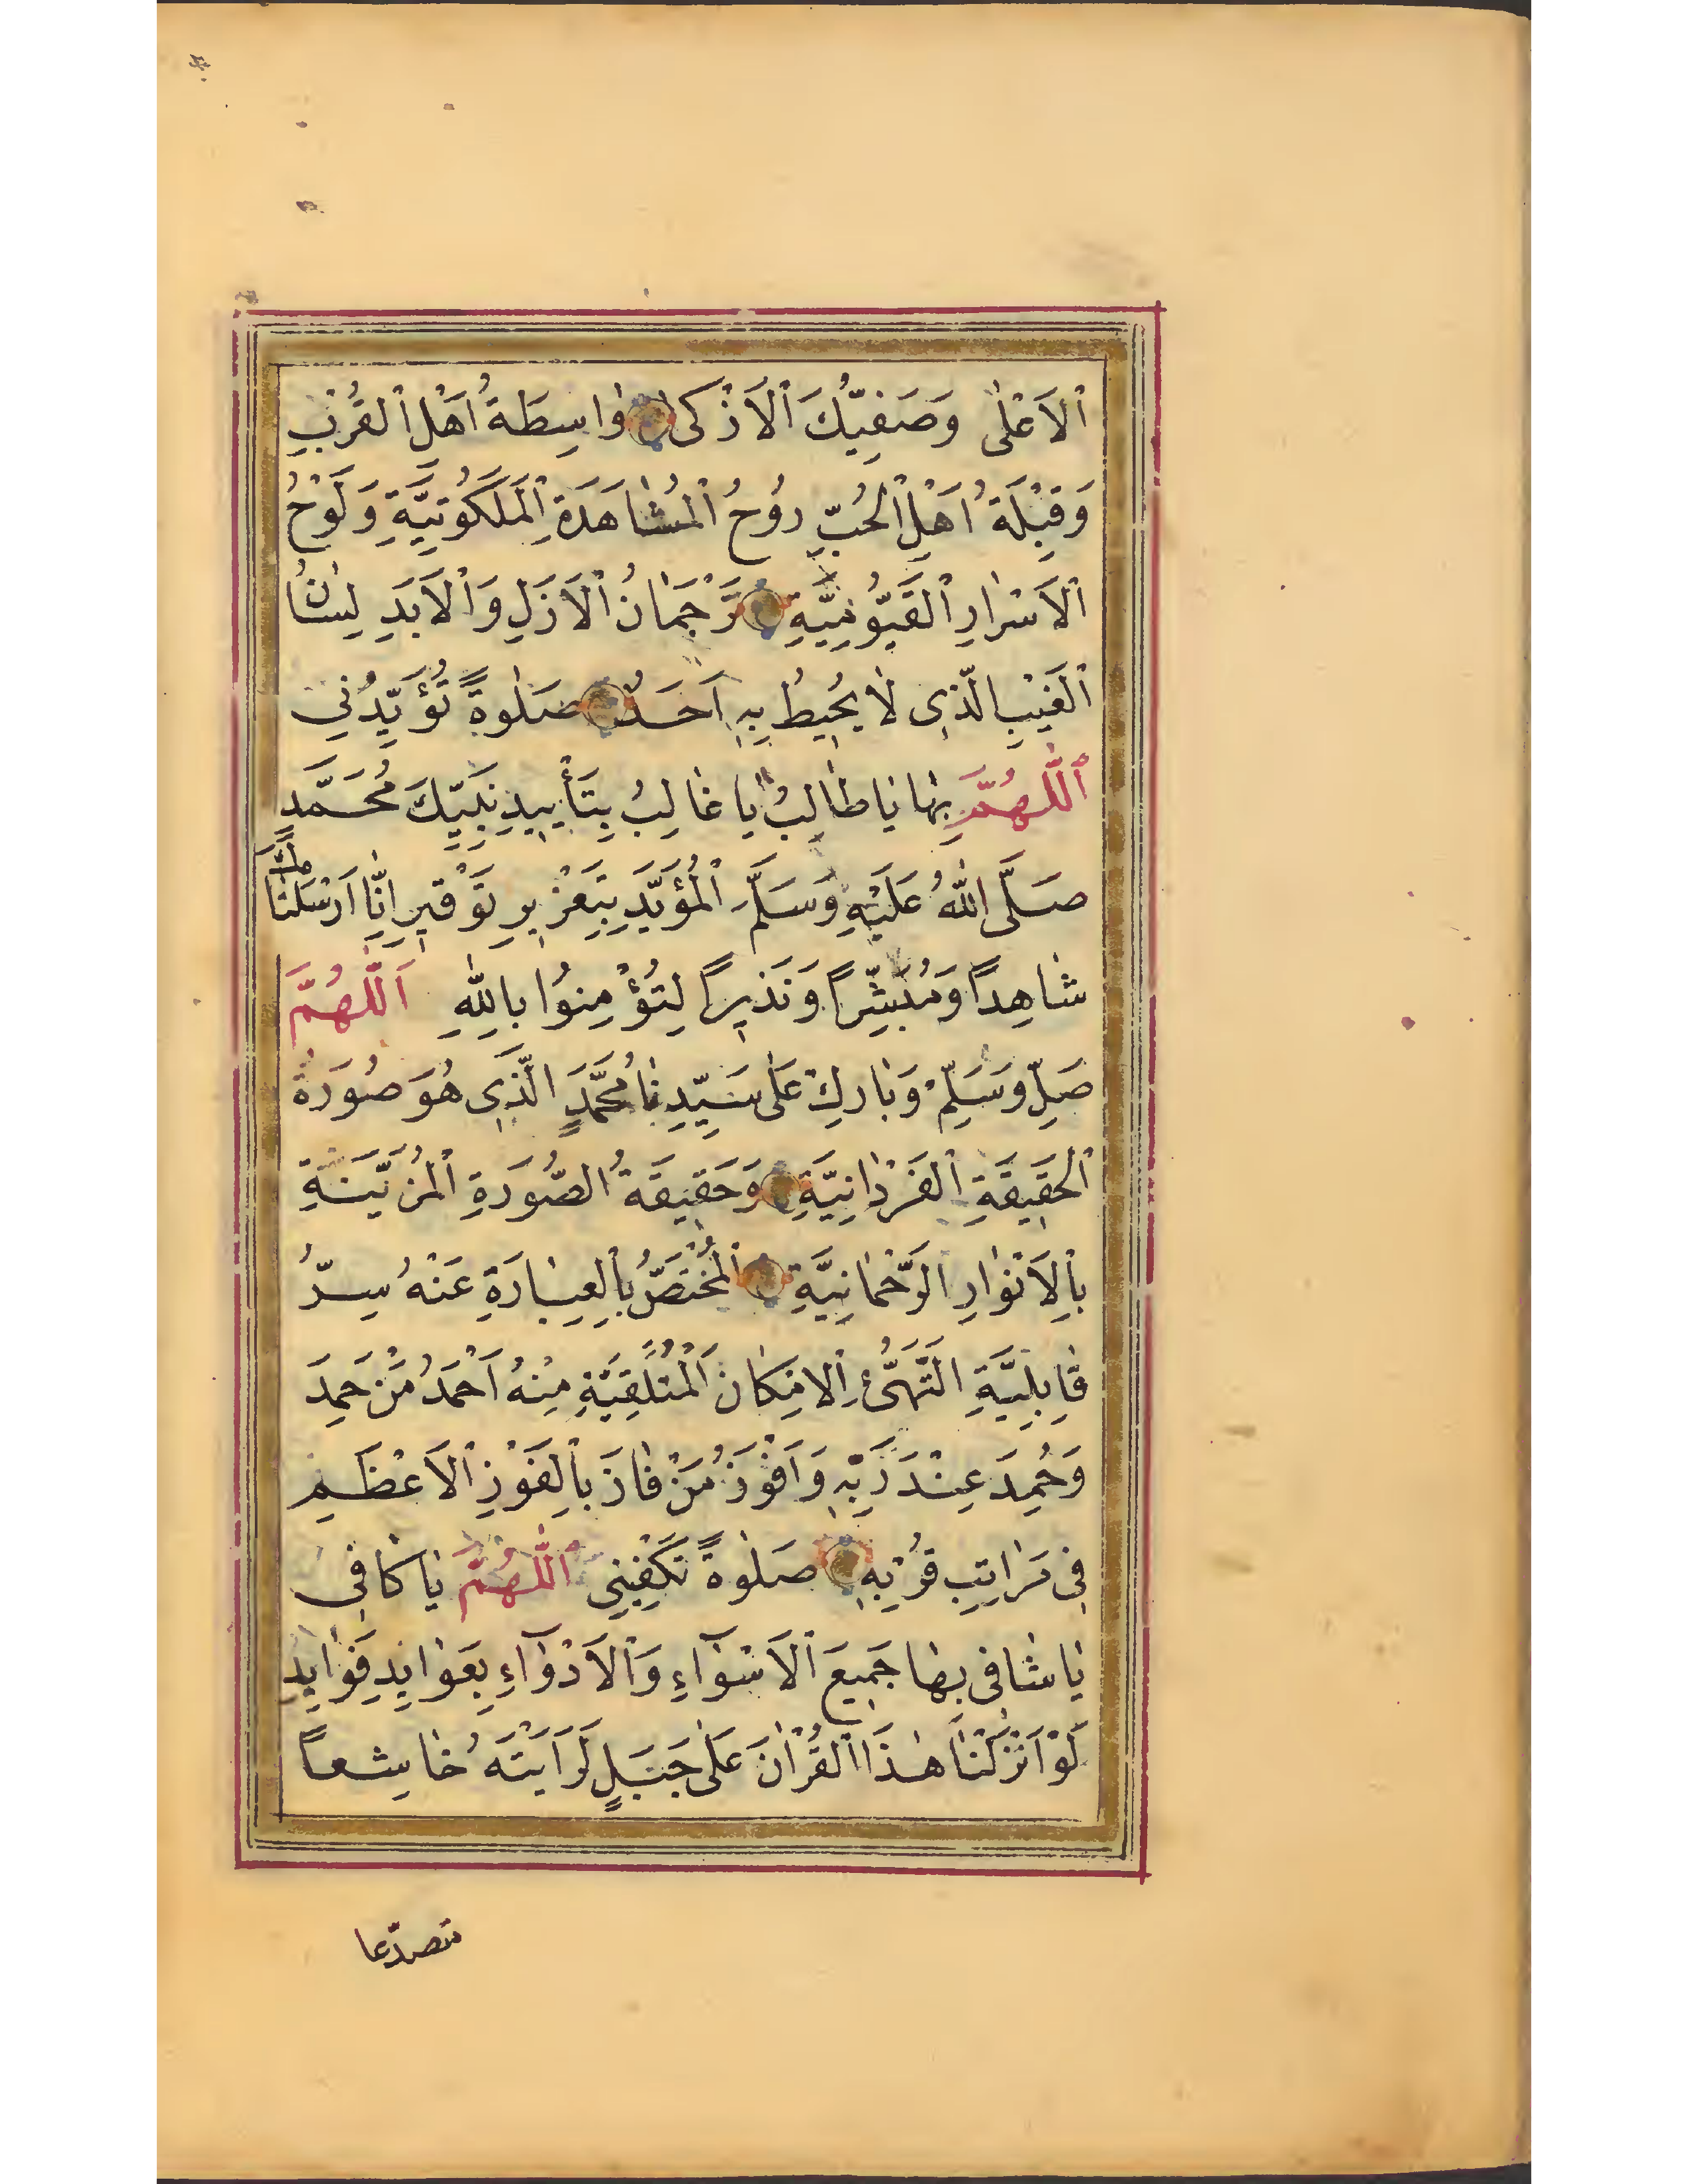 اَلْاَعْلٰى وَصَفِيِّكَ اَلْاَزْكٰى وٰاسِطَةُ اَهْلِ الْقُرْبِ
وَقِبْلَةُ اَهْلِ الْحُبِّ رُوحُ الْمُشٰاهَدَةِ الْمَلَكُوتِيَّةِ وَلَوْحُ
الْاَسْرٰارِ الْقَيُّومِيَّةِ تَرْجَمٰانُ الْاَزَلِ وَالْاَبَدِ لِسٰانُ
الْغَيْبِ الَّذِى لٰا يُحِيطُ بِهِ اَحَدٌ صَلٰوةً تُؤَيِّدُنِى
اَللّٰهُمَّ بِهٰا يٰا طٰالِبُ يٰا غٰالِبُ بِتَأْيِيدِ نَبِيِّكَ مُحَمَّدٍ
صَلَّى اللّٰهُ عَلَيْهِ وَسَلَّمَ الْمُؤَيَّدِ بِتَعْزِيرِ تَوْقِيرِ اِنّٰا اَرْسَلْنٰاكَ
شٰاهِدًا وَمُبَشِّرًا وَنَذِيرًا لِتُؤْمِنُوا بِاللّٰهِ اَللّٰهُمَّ
صَلِّ وَسَلِّمْ وَبٰارِكْ عَلٰى سَيِّدِنٰا مُحَمَّدٍ الَّذِى هُوَ صُورَةُ
الْحَقِيقَةِ الْفَرْدٰانِيَّةِ وَحَقِيقَةُ الصُّورَةِ الْمُزَيَّنَةِ
بِالْاَنْوٰارِ الرَّحْمٰانِيَّةِ الْمُخْتَصُّ بِالْعِبٰارَةِ عَنْهُ سِرُّ
قٰابِلِيَّةِ التَّهَيُّئِ الْاِمْكٰانِ الْمُتَلَقِّيَةِ مِنْهُ اَحْمَدُ مَنْ حَمِدَ
وَحُمِدَ عِنْدَ رَبِّهِ وَاَفْوَزُ مَنْ فٰازَ بِالْفَوْزِ الْاَعْظَمِ
فِى مَرٰاتِبِ قُرْبِهِ صَلٰوةً تَكْفِينِى اَللّٰهُمَّ يٰا كٰافِى
يٰا شٰافِى بِهٰا جَمِيعَ الْاَسْوٰاءِ وَالْاَدْوٰاءِ بِعَوٰايِدِ فَوٰايِدِ
لَوْ اَنْزَلْنٰا هٰذَا الْقُرْاٰنَ عَلٰى جَبَلٍ لَرَاَيْتَهُ خٰاشِعاً
متصدّعا